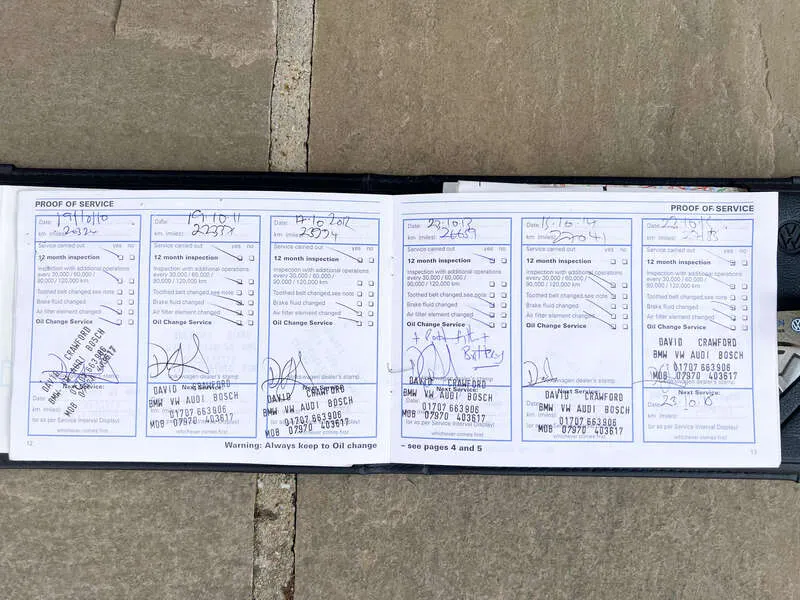 PROOF OF SERVICE
Date: 19/10/10
km (miles): 20324
Service carried out yes no
12 month inspection
Inspection with additional operations
every 30,000 / 60,000 /
90,000/120,000 km
Toothed belt changed, see note
Brake fluid changed
Air filter element changed
Oil Change Service
DAVID CRAWFORD
BMW VW AUDI BOSCH
01707 663906
MOB 07970 403617
Next Service:
Date:
km (miles):
(or as per Service Interval Display)
whichever comes first
12
Date: 19.10.11
km (miles): 22337
Service carried out yes no
12 month inspection
Inspection with additional operations
every 30,000 / 60,000 /
90,000/120,000 km
Toothed belt changed, see note
Brake fluid changed
Air filter element changed
Oil Change Service
Volkswagen dealer's stamp
Next Service:
DAVID CRAWFORD
BMW VW AUDI BOSCH
01707 663906
MOB 07970 403617
whichever comes first
Date: 17.10.2012
km (miles):
Service carried out yes no
12 month inspection
Inspection with additional operations
every 30,000 / 60,000 /
90,000/120,000 km
Toothed belt changed, see note
Brake fluid changed
Air filter element changed
Oil Change Service
Volkswagen dealer's stamp
Next Service:
DAVID CRAWFORD
BMW VW AUDI BOSCH
01707 663906
MOB 07970 403617
whichever comes first
Warning: Always keep to Oil change
PROOF OF SERVICE
Date: 23.10.13
km (miles): 26659
Service carried out yes no
12 month inspection
Inspection with additional operations
every 30,000 / 60,000 /
90,000/120,000 km
Toothed belt changed, see note
Brake fluid changed
Air filter element changed
Oil Change Service
+
Battery
DAVID CRAWFORD
BMW VW AUDI BOSCH
01707 663906
MOB 07970 403617
(or as per Service Interval Display)
whichever comes first
– see pages 4 and 5
Date: 15.10.14
km (miles):
Service carried out yes no
12 month inspection
Inspection with additional operations
every 30,000 / 60,000 /
90,000/120,000 km
Toothed belt changed, see note
Brake fluid changed
Air filter element changed
Oil Change Service
Volkswagen dealer's stamp
Next Service:
DAVID CRAWFORD
BMW VW AUDI BOSCH
01707 663906
MOB 07970 403617
(or as per Service Interval Display)
whichever comes first
Date:
km (miles):
Service carried out yes no
12 month inspection
Inspection with additional operations
every 30,000 / 60,000 /
90,000/120,000 km
Toothed belt changed, see note
Brake fluid changed
Air filter element changed
Oil Change Service
DAVID CRAWFORD
BMW VW AUDI BOSCH
01707 663906
MOB 07970 403617
Next Service:
Date:
km (miles):
(or as per Service Interval Display)
whichever comes first
13